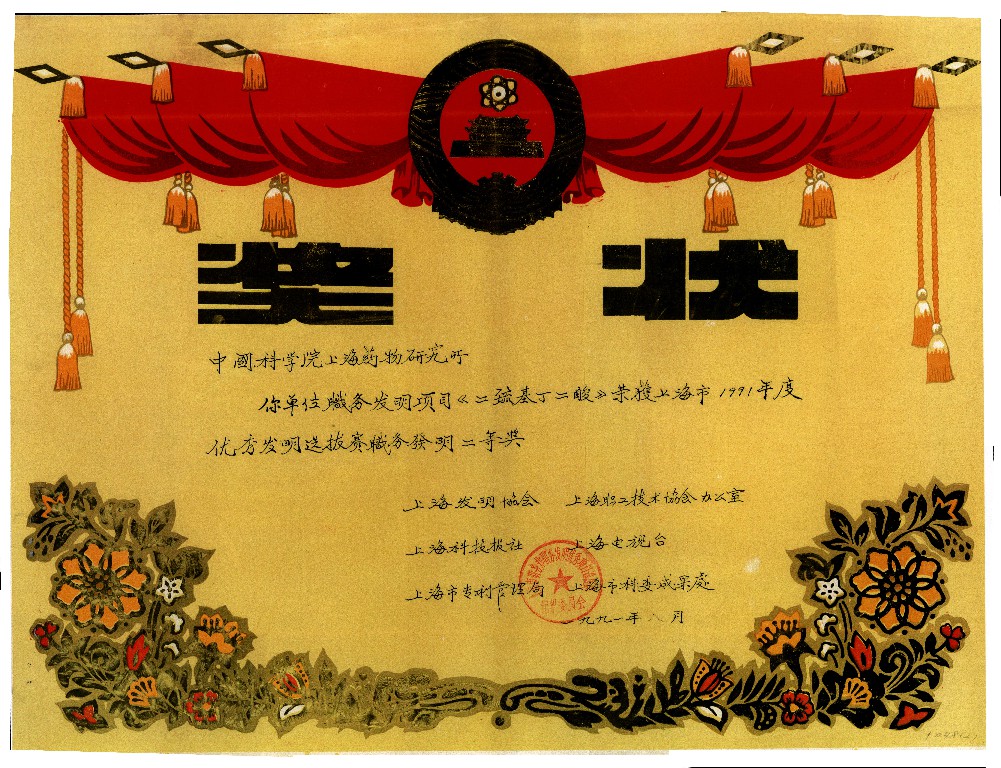 奖状
中國科学院上海药物研究所
你单位職务发明项目《二巯基丁二酸》荣獲上海市1991年度
优秀发明选拔赛職务發明二等奖
上海发明协会 上海职工技术协会办公室
上海科技报社 上海电视台
上海市专利管理局 上海市科委成果處
一九九一年八月